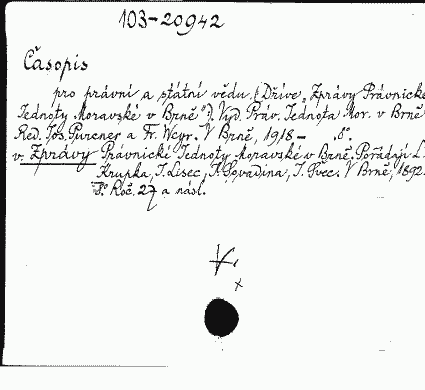 103-20942
Časopis
pro právní a státní vědu. (Dříve „Zprávy Právnické
Jednoty Moravské v Brně".) Vyd. Práv. Jednota Mor. v Brně
Red. Jos. Purcner a Fr. Weyr. V Brně, 1918- 8°.
v. Zprávy Právnické Jednoty Moravské v Brně. Pořádají L.
Krupka, J. Lisec, J. Šec. V Brně, 1892.
8° Roč. 27 a násl.